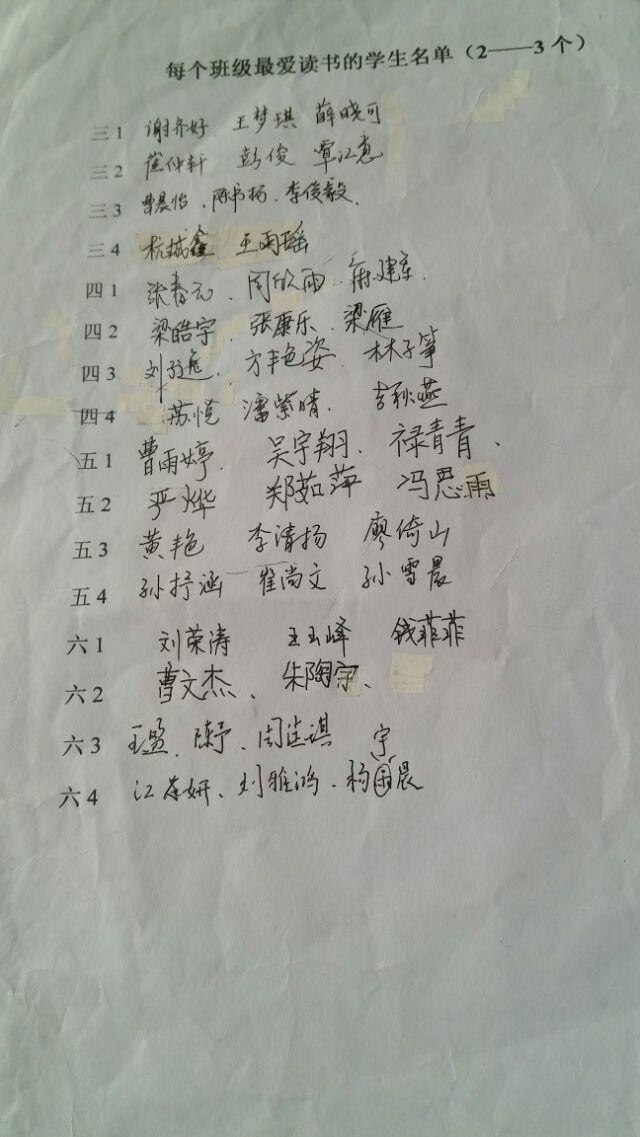 每个班级最爱读书的学生名单（2——3个）
三1 谢齐好 王梦琪 薛晓可
三2 焦仲轩 彭俊 覃江惠
三3 曹晨怡、陈书扬、李俊毅、
三4 杭城鑫 王雨瑶
四1 张春元、周欣雨、麻建东、
四2 梁皓宇、张康乐、梁雁
四3 方艳姿、林子筝
四4 苏悦 潘紫晴、吉秋燕
五1 曹雨婷、吴宇翔、禄青青、
五2 严烨 郑茹萍 冯思雨
五3 黄艳 李清扬 廖倚山
五4 孙抒涵 崔尚文 孙雪晨
六1 刘荣涛 王玉峰 钱菲菲
六2 曹文杰、朱陶宇、
六3 陈予、周佳琪 宇
六4 刘雅鸿、杨雨晨